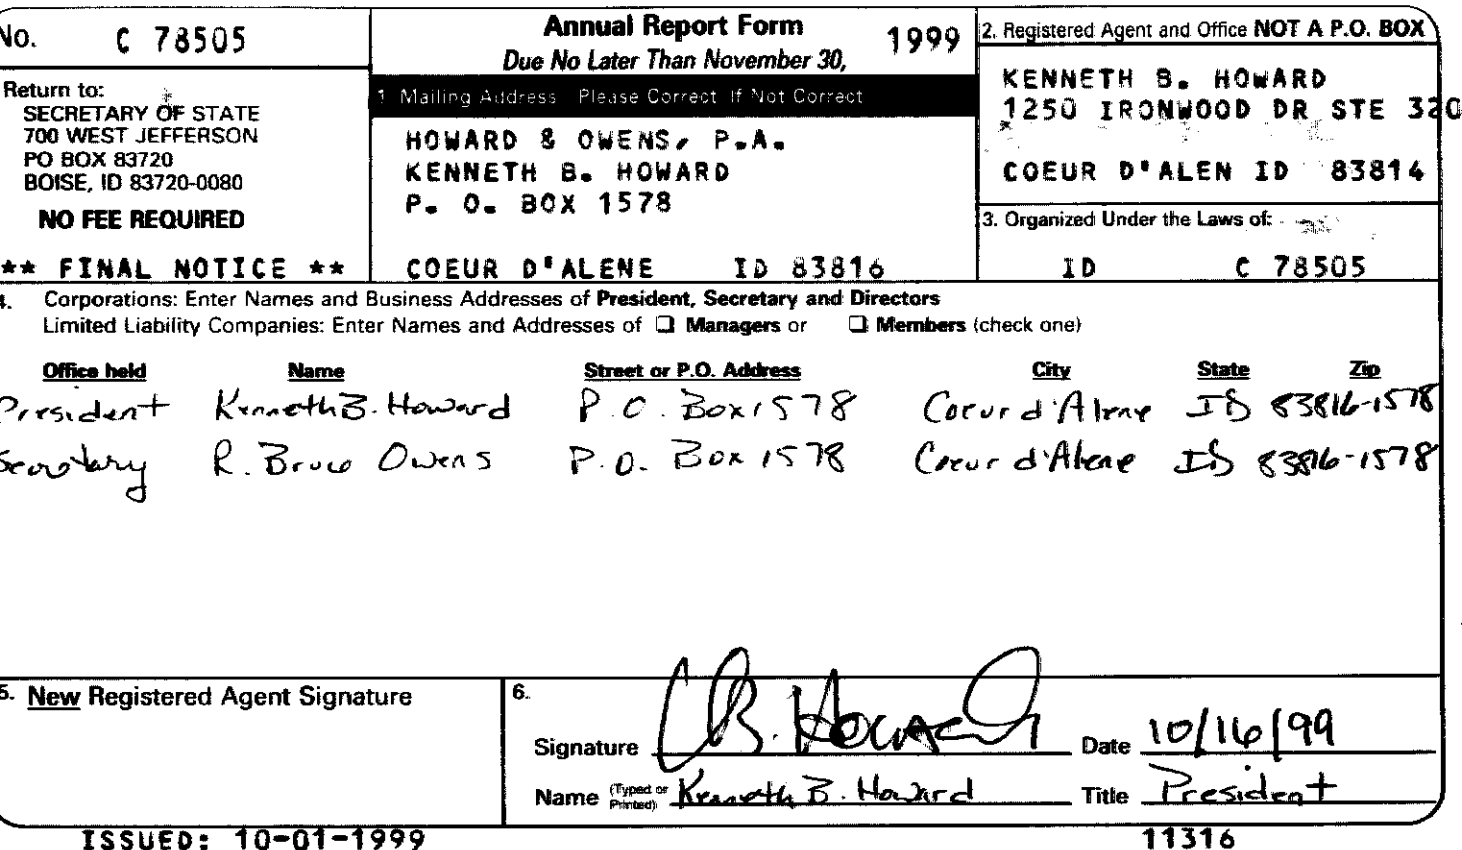 No. C 78505
Return to:
SECRETARY OF STATE
700 WEST JEFFERSON
PO BOX 83720
BOISE, ID 83720-0080
NO FEE REQUIRED
** FINAL NOTICE **
Annual Report Form 1999
Due No Later Than November 30,
1 Mailing Address Please Correct If Not Correct
HOWARD & OWENS, P.A.
KENNETH B. HOWARD
P. O. BOX 1578
COEUR D'ALENE ID 83816
2. Registered Agent and Office NOT A P.O. BOX
KENNETH B. HOWARD
1250 IRONWOOD DR STE 320
COEUR D'ALEN ID 83814
3. Organized Under the Laws of:
ID C 78505
4. Corporations: Enter Names and Business Addresses of President, Secretary and Directors
Limited Liability Companies: Enter Names and Addresses of ❑ Managers or ❑ Members (check one)
Office held Name Street or P.O. Address City State Zip
President Kenneth B. Howard P.O. Box 1578 Coeur d'Alene ID 83816-1578
Secretary R. Bruce Owens P.O. Box 1578 Coeur d'Alene ID 83816-1578
5. New Registered Agent Signature
6.
Signature B. Howard Date 10/16/99
Name (Typed or Printed) Kenneth B. Howard Title President
ISSUED: 10-01-1999 11316